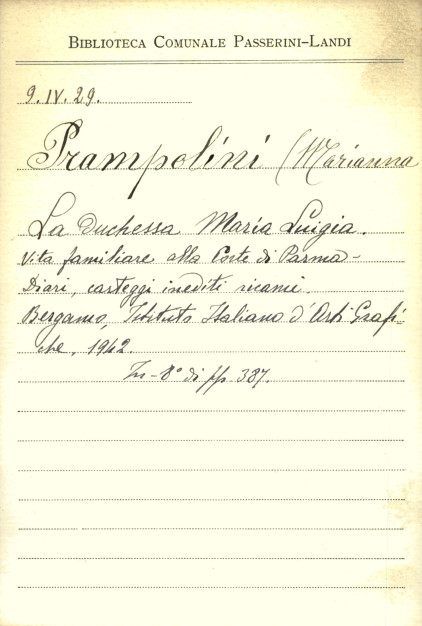 BIBLIOTECA COMUNALE PASSERINI-LANDI
9.IV.29.
Prampolini (Marianna
La Duchessa Maria Luigia.
Vita familiare alla Corte di Parma-
Diari, carteggi inediti ricami.
Bergamo, Istituto Italiano d'Arti Grafi-
che, 1942.
In-8° di pp. 387.